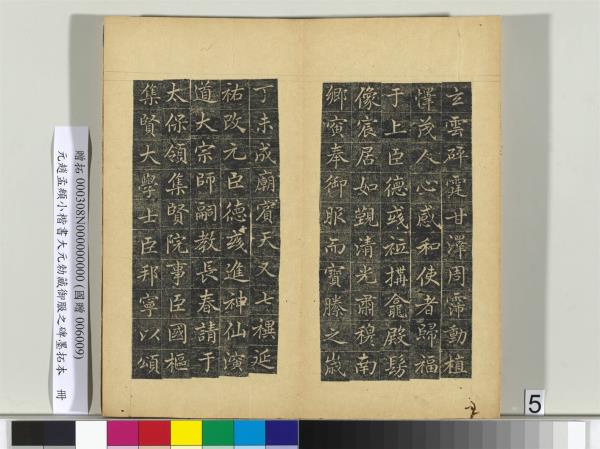 立雲砰霆甘澤周霈動植
懌茂人心感和使者歸福
于上臣德彧祗搆龕殿髣
像宸居如覲清光肅穆南
鄉寅奉御服而寶縢之歲
丁未成廟賓天又七禩延
祐改元臣德彧進神仙演
道大宗師嗣教長春請于
太保領集賢院事臣國樞
集賢大學士臣邦寧以頌
贈拓 000308N000000000 (國贈 006009)
元趙孟頫小楷書大元勅藏御服之碑墨拓本 冊
5